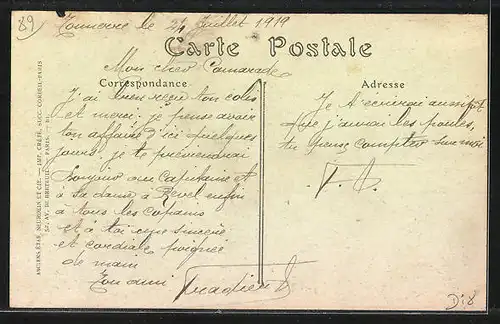 89
Tonnerre le 24 Juillet 1919
Carte Postale
Mon cher Camarade
Correspondance
J'ai bien reçu ton colis
et merci. je pense avoir
ton affaire d'ici quelques
jours. je te préviendrai
Bonjour au Capitaine et
à sa dame à Revel enfin
à tous les copains
et à toi une sincère
et cordiale poignée
de main
Ton ami
Adresse
Je t'écrirai aussitôt
que j'aurai les poules,
tu peux compter sur moi
ANCIENS ÉTAB. NEURDEIN ET CIE. — IMP. CRÉTÉ, SUCC. CORBEIL-PARIS
52, AV. DE BRETEUIL — PARIS
D18